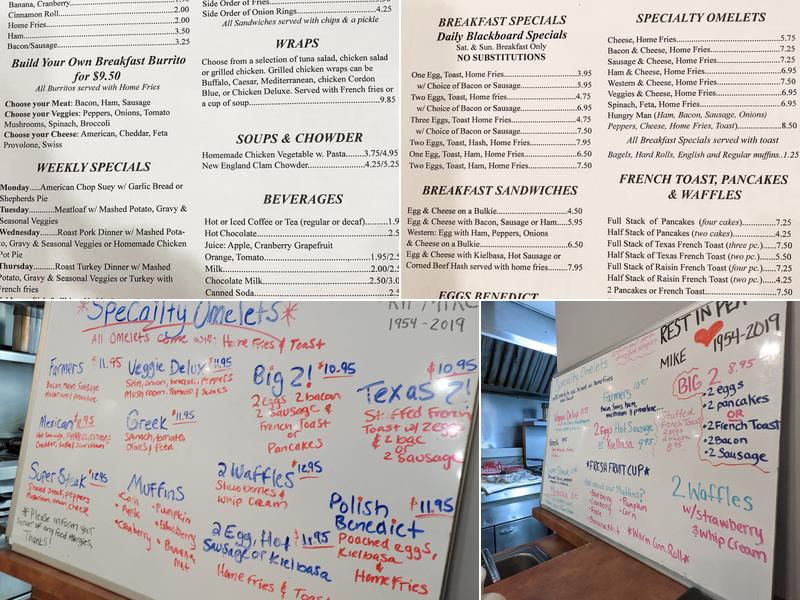 Banana, Cranberry
Cinnamon Roll 2.00
Home Fries 2.00
Ham 3.50
Bacon/Sausage 3.25
Build Your Own Breakfast Burrito
for $9.50
All Burritos served with Home Fries
Choose your Meat: Bacon, Ham, Sausage
Choose your Veggies: Peppers, Onions, Tomato
Mushrooms, Spinach, Broccoli
Choose your Cheese: American, Cheddar, Feta
Provolone, Swiss
WEEKLY SPECIALS
Monday.....American Chop Suey w/ Garlic Bread or
Shepherds Pie
Tuesday..........Meatloaf w/ Mashed Potato, Gravy &
Seasonal Veggies
Wednesday..........Roast Pork Dinner w/ Mashed Pota-
to, Gravy & Seasonal Veggies or Homemade Chicken
Pot Pie
Thursday..........Roast Turkey Dinner w/ Mashed
Potato, Gravy & Seasonal Veggies or Turkey with
French fries
Side Order of Onion Rings 4.25
All Sandwiches served with chips & a pickle
WRAPS
Choose from a selection of tuna salad, chicken salad
or grilled chicken. Grilled chicken wraps can be
Buffalo, Caesar, Mediterranean, chicken Cordon
Blue, or Chicken Deluxe. Served with French fries or
a cup of soup 9.85
SOUPS & CHOWDER
Homemade Chicken Vegetable w. Pasta 3.75/4.95
New England Clam Chowder 4.25/5.25
BEVERAGES
Hot or Iced Coffee or Tea (regular or decaf)
Hot Chocolate
Juice: Apple, Cranberry Grapefruit
Orange, Tomato
Milk
Chocolate Milk
Canned Soda
BREAKFAST SPECIALS
Daily Blackboard Specials
Sat. & Sun. Breakfast Only
NO SUBSTITUTIONS
One Egg, Toast, Home Fries 3.95
w/ Choice of Bacon or Sausage 5.95
Two Eggs, Toast, Home Fries 4.75
w/ Choice of Bacon or Sausage 6.95
Three Eggs, Toast Home Fries 4.75
w/ Choice of Bacon or Sausage 7.50
Two Eggs, Toast, Hash, Home Fries 7.95
One Egg, Toast, Ham, Home Fries 6.50
Two Eggs, Toast, Ham, Home Fries 7.50
BREAKFAST SANDWICHES
Egg & Cheese on a Bulkie 4.50
Egg & Cheese with Bacon, Sausage or Ham 5.95
Western: Egg with Ham, Peppers, Onions
& Cheese on a Bulkie 6.50
Egg & Cheese with Kielbasa, Hot Sausage or
Corned Beef Hash served with home fries 7.95
EGGS BENEDICT
SPECIALTY OMELETS
Cheese, Home Fries 5.75
Bacon & Cheese, Home Fries 7.25
Sausage & Cheese, Home Fries 7.25
Ham & Cheese, Home Fries 6.95
Western & Cheese, Home Fries 7.50
Veggies & Cheese, Home Fries 6.95
Spinach, Feta, Home Fries 6.95
Hungry Man (Ham, Bacon, Sausage, Onions)
Peppers, Cheese, Home Fries, Toast) 8.50
All Breakfast Specials served with toast
Bagels, Hard Rolls, English and Regular muffins..1.25
FRENCH TOAST, PANCAKES
& WAFFLES
Full Stack of Pancakes (four cakes) 7.25
Half Stack of Pancakes (two cakes) 4.25
Full Stack of Texas French Toast (three pc.) 7.50
Half Stack of Texas French Toast (two pc.) 5.50
Full Stack of Raisin French Toast (four pc.) 7.25
Half Stack of Raisin French Toast (two pc.) 4.25
2 Pancakes or French Toast 7.50
*Specailty Omelets*
All Omelets come with Home Fries & Toast
1954-2019
Farmers $11.95
Bacon, Ham, Sausage
Veggie Delux $11.95
Spin, onion, broccoli, peppers
Mushroom, tomato & Swiss
Mexican $11.95
Hot Sausage, Peppers, onions
Greek $11.95
Spinach, tomato,
Olives & Feta
Super Steak $12.95
Shaved steak, peppers
Mushroom, onion, cheese
Muffins
Corn • Pumpkin
• Apple • Blueberry
• Cranberry • Banana
Nut
*Please inform your
server of any food allergies,
Thanks!
Big 2! $10.95
2 eggs 2 bacon
2 Sausage &
French Toast
or
Pancakes
2 Waffles $12.95
Strawberries &
Whip Cream
2 Egg, Hot $11.95
Sausage or Kielbasa
Home fries & Toast
$10.95
Texas 2!
Stuffed French
Toast w/ 2 eggs
& 2 bac
or
2 Sausage
Polish $11.95
Benedict
Poached eggs,
Kielbasa
& Home Fries
REST IN PEA
MIKE 1954-2019
Specialty Omelets
Veggie Delux
Greek
Farmers
Bacon, Saus, ham,
2 Eggs Hot Sausage
or Kielbasa 9.95
*FRESH FRUIT CUP*
• Blueberry • Pumpkin
• Cranberry • Corn
• Apple
• Banana Nut *Warm Cinn. Roll*
Stuffed
French Toast
2 eggs
2 bacon
8.95
BIG 2 8.95
• 2 eggs
• 2 pancakes
OR
• 2 French Toast
• 2 Bacon
• 2 Sausage
2 Waffles
w/ strawberry
& Whip Cream